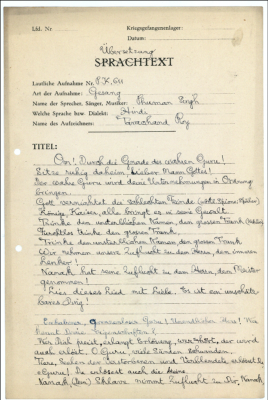 Lfd. Nr. Kriegsgefangenenlager:
Datum:
Übersetzung
SPRACHTEXT
Lautliche Aufnahme Nr. P.K. 611
Art der Aufnahme: Gesang
Name der Sprecher, Sänger, Musiker: Singh
Welche Sprache bzw. Dialekt: Hindi
Name des Aufzeichners: Tarachand Roy
TITEL:
Om! Durch die Gnade des wahren Guru!
Sitze ruhig daheim, lieber Mann Gottes!
Der wahre Guru wird deine Unternehmungen in Ordnung
bringen.
Gott vernichtet die schlechten Feinde
Könige, Kaiser, alle bringt er in seine Gewalt.
Trinke den unsterblichen Namen, den grossen Trank
Furchtlos trinke den grossen Trank.
Trinke den unsterblichen Namen, den grossen Trank
Wir nehmen unsere Zuflucht in dem Herrn, dem inneren
Lenker!
Nanak hat seine Zuflucht in dem Herrn, dem Meister
genommen!
Lies dieses Lied mit Liebe. Es ist ein unschätz-
bares Ding!
Guru! Unendlicher Herr! Wer
kennt deine Eigenschaften!
Für Dich preist, erlangt Erlösung, wer hört, der wird
auch erlöst. O Guru, viele Sünden
Tiere, und Verblendete erlöset
Guru! Du erlösest auch die
Nanak (Dein) Sklave nimmt Zuflucht in Dir, Nanak